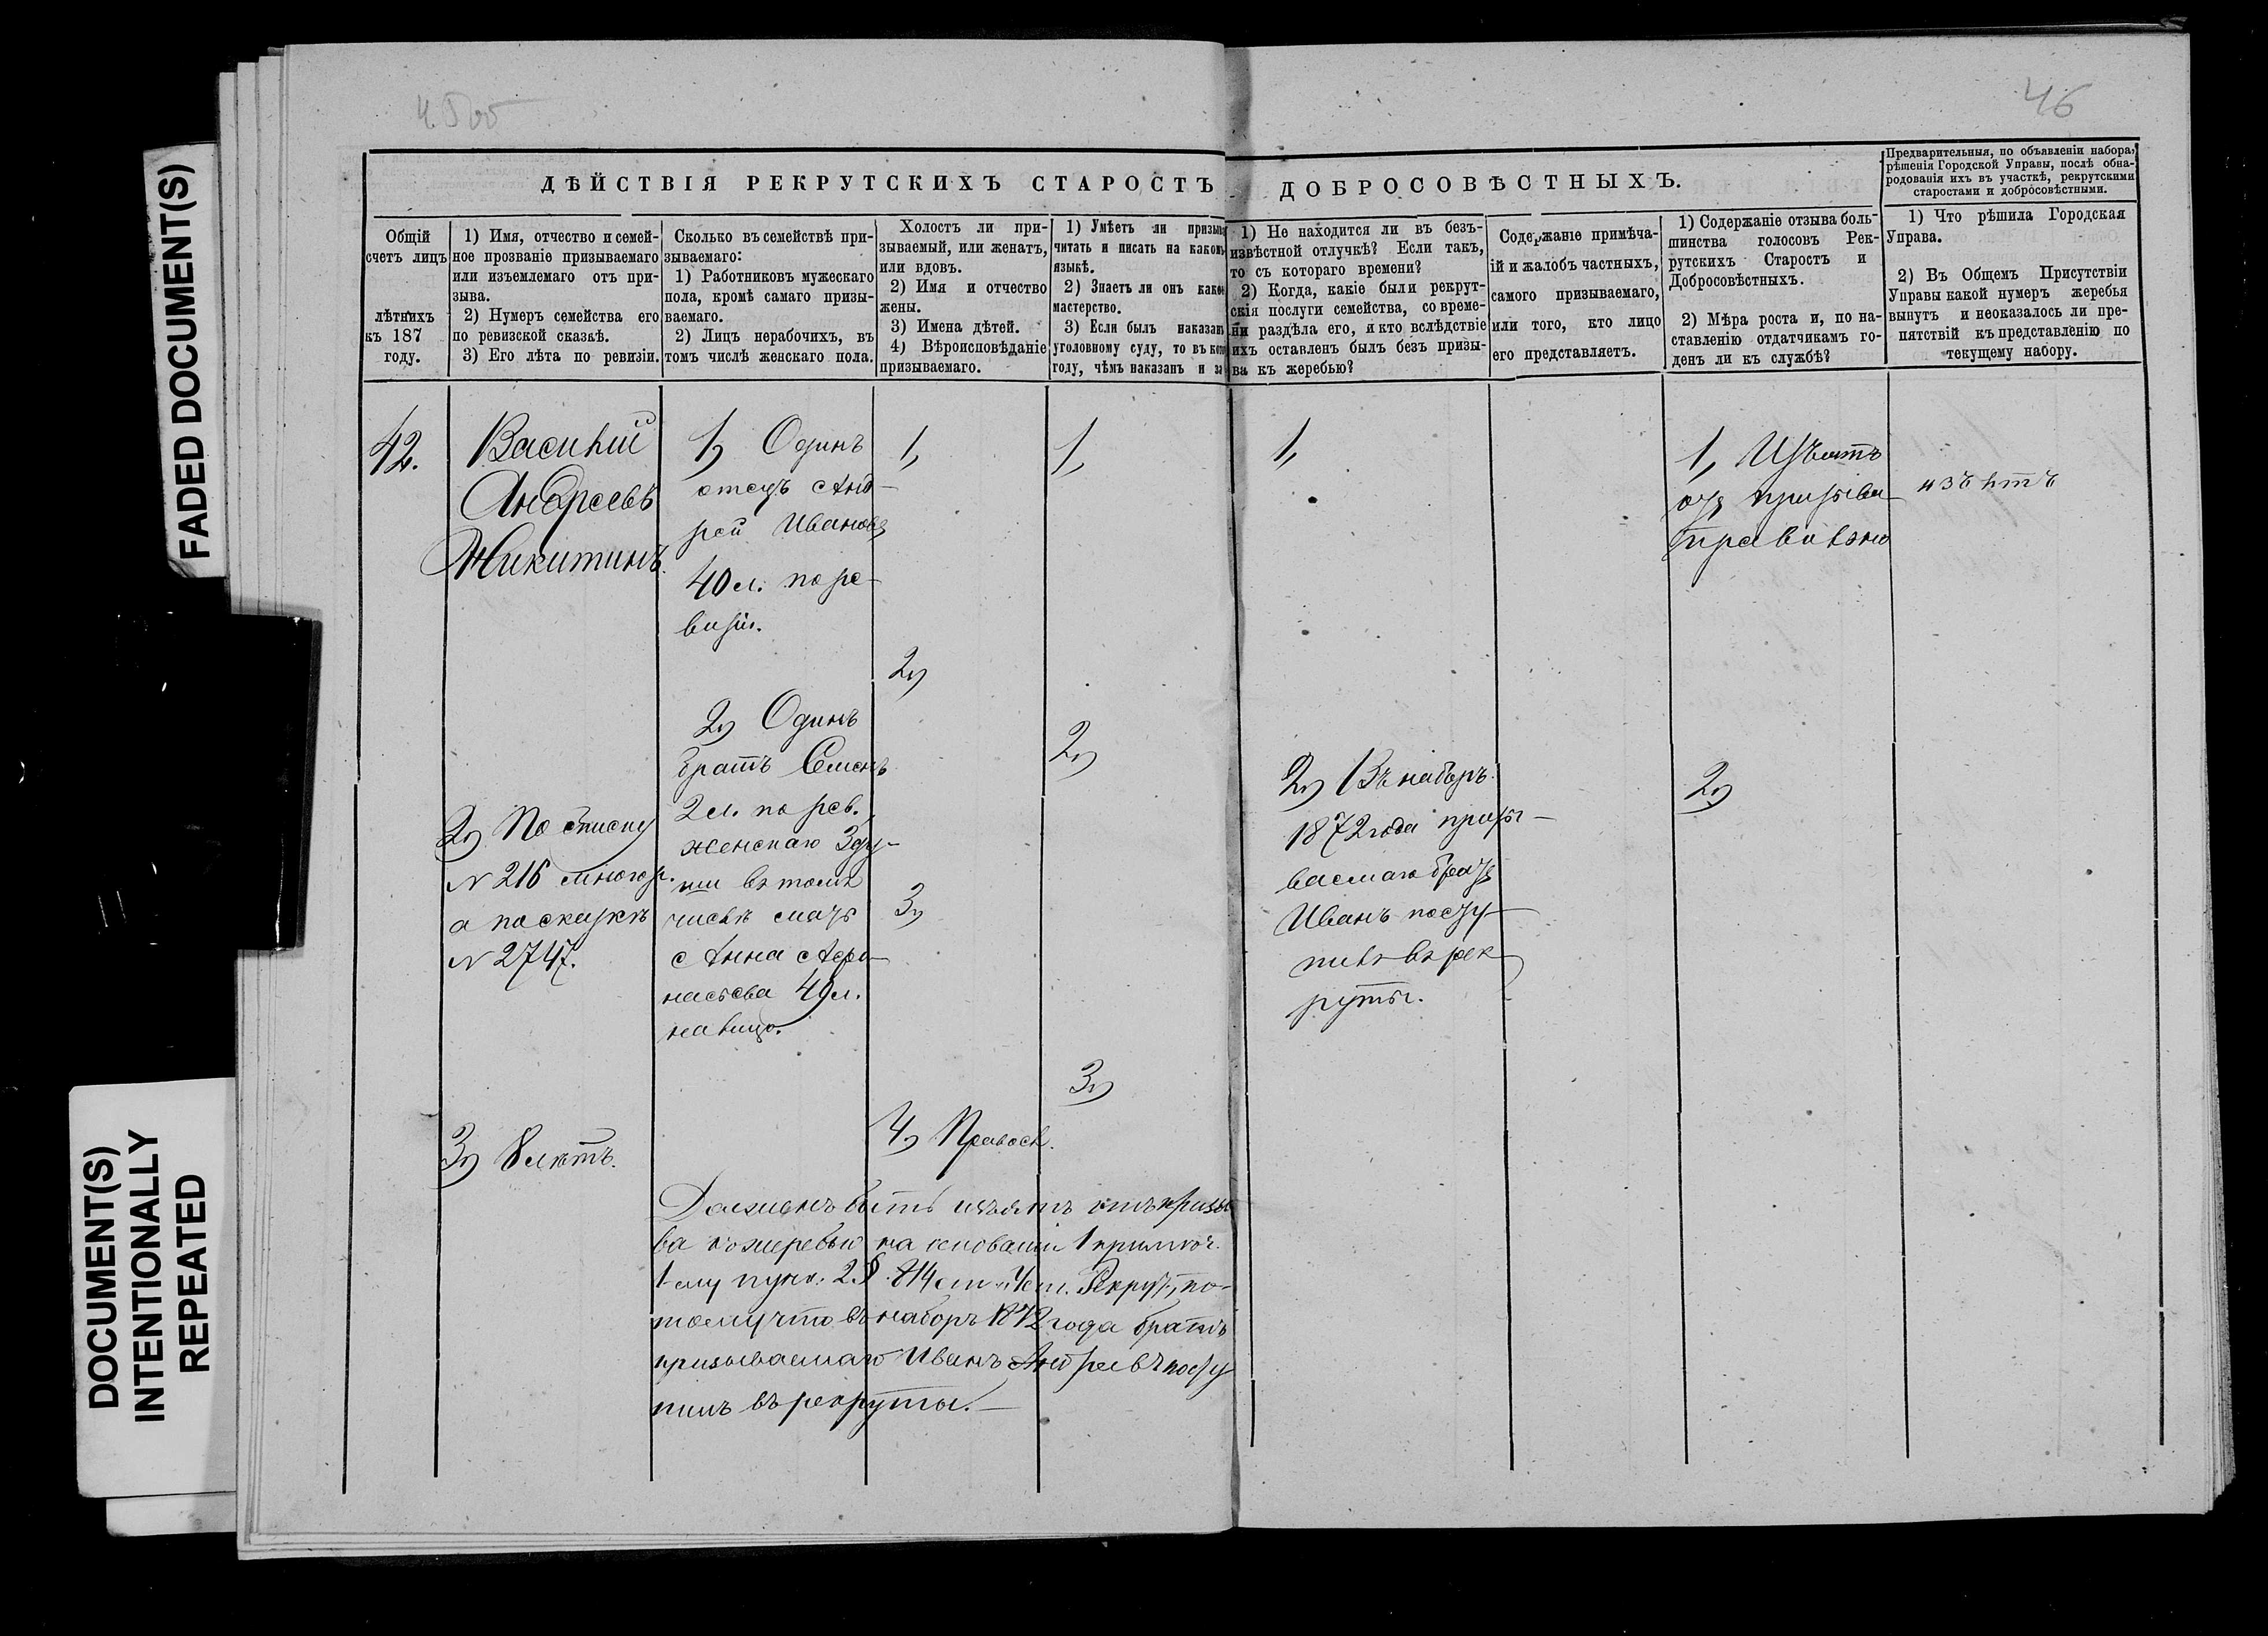 46
ДѢЙСТВІЯ РЕКРУТСКИХЪ СТАРОСТЪ
ДОБРОСОВѢСТНЫХЪ.
Предварительныя, по объявленіи набора,
рѣшенія Городской Управы, послѣ обна-
родованія ихъ въ участкѣ, рекрутскими
старостами и добросовѣстными.
Общій
счетъ лицъ
лѣтнихъ
къ 187
году.
1) Имя, отчество и семей-
ное прозваніе призываемаго
или изъемлемаго отъ при-
зыва.
2) Нумеръ семейства его
по ревизской сказкѣ.
3) Его лѣта по ревизіи.
Сколько въ семействѣ при-
зываемаго:
1) Работниковъ мужескаго
пола, кромѣ самаго призы-
ваемаго.
2) Лицъ нерабочихъ, въ
томъ числѣ женскаго пола.
Холостъ ли при-
зываемый, или женатъ,
или вдовъ.
2) Имя и отчество
жены.
3) Имена дѣтей.
4) Вѣроисповѣданіе
призываемаго.
1) Умѣетъ ли призыв
читать и писать на каком
языкѣ.
2) Знаетъ ли онъ како
мастерство.
3) Если былъ наказан
уголовному суду, то въ ко
году, чѣмъ наказанъ и за
1) Не находится ли въ безъ-
извѣстной отлучкѣ? Если такъ,
то съ котораго времени?
2) Когда, какіе были рекрут-
скія послуги семейства, со време-
ни раздѣла его, и кто вслѣдствіе
ихъ оставленъ былъ безъ призы-
ва къ жеребью?
Содержаніе примѣча-
ій и жалобъ частныхъ,
самого призываемаго,
или того, кто лицо
его представляетъ.
1) Содержаніе отзыва боль-
шинства голосовъ Рек-
рутскихъ Старостъ и
Добросовѣстныхъ.
2) Мѣра роста и, по на-
ставленію отдатчикамъ го-
денъ ли къ службѣ?
1) Что рѣшила Городская
Управа.
2) Въ Общемъ Присутствіи
Управы какой нумеръ жеребья
вынутъ и неоказалось ли пре-
пятствій къ представленію по
текущему набору.
42.
Василій
Андреевъ
Никитинъ.
2) По списку
№ 216 многор.
а по сказкѣ
№ 2747.
3) 8 лѣтъ.
1) Одинъ
отецъ Анд-
рей Ивановъ
40 л. по ре-
визіи.
2) Одинъ
братъ Семенъ
2 л. по рев.,
женскаго 3 ду-
ши въ томъ
числѣ мать
Анна Афа-
насьева 49 л.
на лицо.
1,
2)
3)
4) Правосл.
1,
2)
3)
1,
2) Въ наборъ
1872 года призы-
ваемаго братъ
Иванъ посту-
пилъ въ рек
руты.
1, Изъятъ
отъ призыва
правильно
2)
Долженъ быть изъятъ отъ призы
ва къ жеребью на основаніи 1 примѣч.
1-му пунк. 2 § 814 ст. Уст. Рекрут., по-
тому что въ наборъ 1872 года братъ
призываемаго Иванъ Андреевъ посту
пилъ въ рекруты.—
FADED DOCUMENT(S)
DOCUMENT(S)
INTENTIONALLY
REPEATED